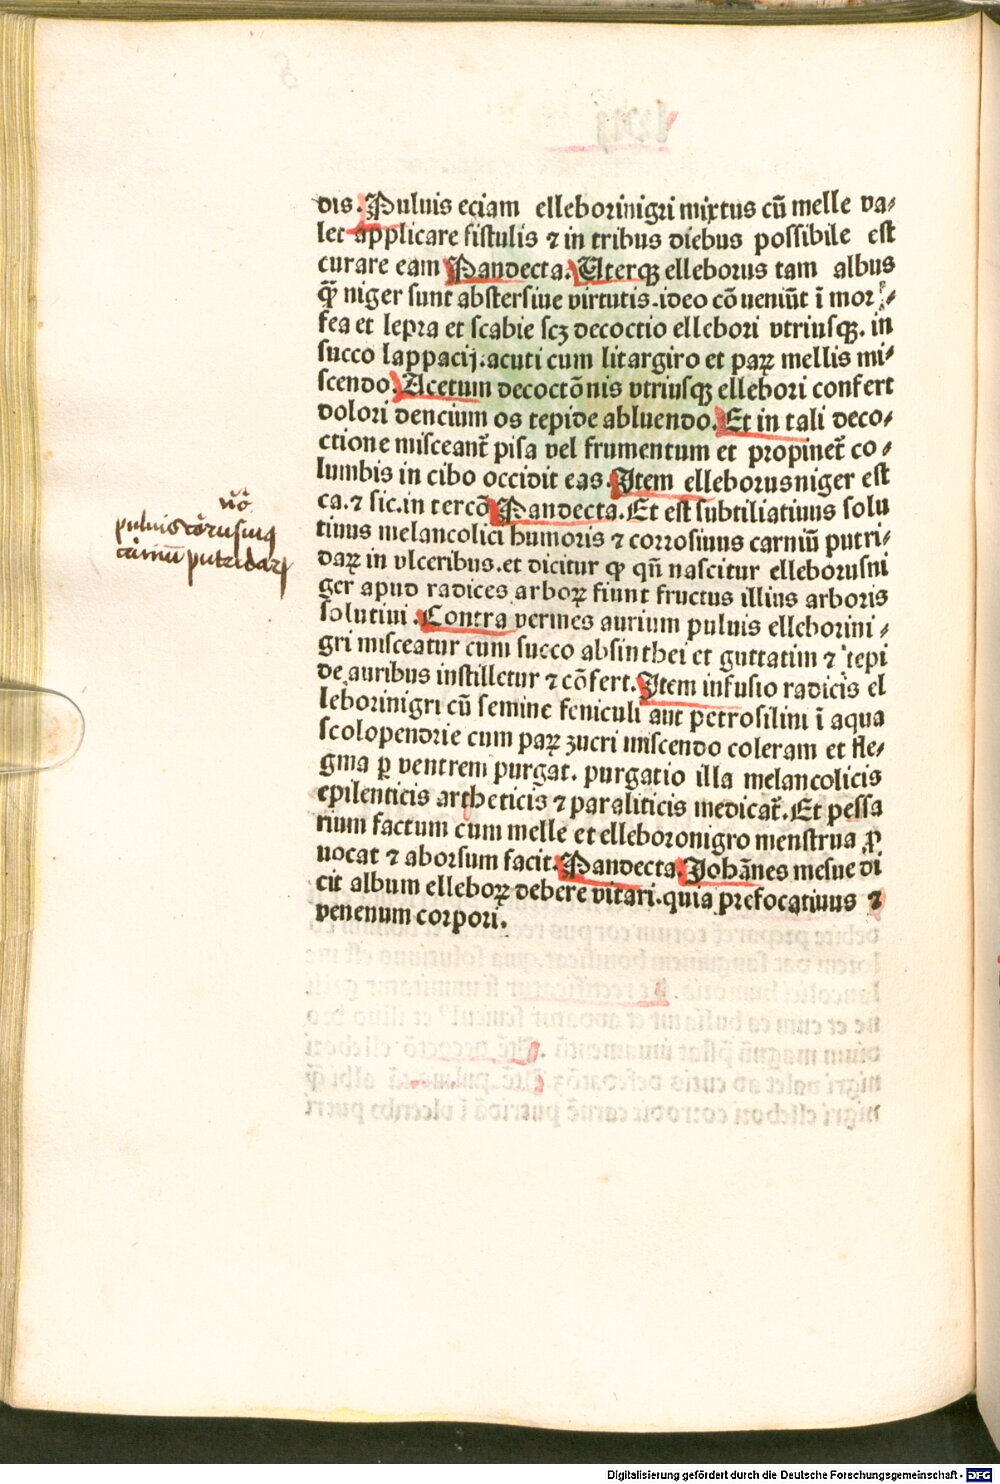 dis. Puluis eciam elleborinigri mixtus cū melle va⸗
let applicare fistulis ⁊ in tribus diebus possibile est
curare eam Pandecta. Uterqꝫ elleborus tam albus
qꝫ̄ niger sunt abstersiue virtutis. ideo cōueniūt ī mor⸗
fea et lepra et scabie scꝫ decoctio ellebori vtriusqꝫ. in
succo lappacij. acuti cum litargiro et paꝝ mellis mi⸗
scendo. Acetum decoctōnis vtriusqꝫ ellebori confert
dolori dencium os tepide abluendo. Et in tali deco⸗
ctione misceant᷑ pisa vel frumentum et propinet᷑ co⸗
lumbis in cibo occidit eas. Item elleborusniger est
ca. ⁊ sic. in tercō Pandecta. Et est subtiliatiuus solu
tiuus melancolici humoris ⁊ corrosiuus carniū putri⸗
daꝝ in vlceribus. et dicitur ꝙ qn̄ nascitur elleborusni
ger apud radices arboꝝ fiunt fructus illius arboris
solutiui. Contra vermes aurium puluis elleborini⸗
gri misceatur cum succo absinthei et guttatim ⁊ tepi
de auribus instilletur ⁊ cōfert. Item infusio radicis el
leborinigri cū semine feniculi aut petrosilini ī aqua
scolopendrie cum paꝝ zucri miscendo coleram et fle⸗
gma ꝑ ventrem purgat. purgatio illa melancolicis
epilenticis artheticis ⁊ paraliticis medicat᷑. Et pessa
rium factum cum melle et elleboronigro menstrua ꝓ
uocat ⁊ aborsum facit. Pandecta. Johānes mesue di
cit album elleboꝝ debere vitari. quia prefocatiuus ⁊
venenum corpori.
puluis
putridaꝝ
Digitalisierung gefördert durch die Deutsche Forschungsgemeinschaft - DFG